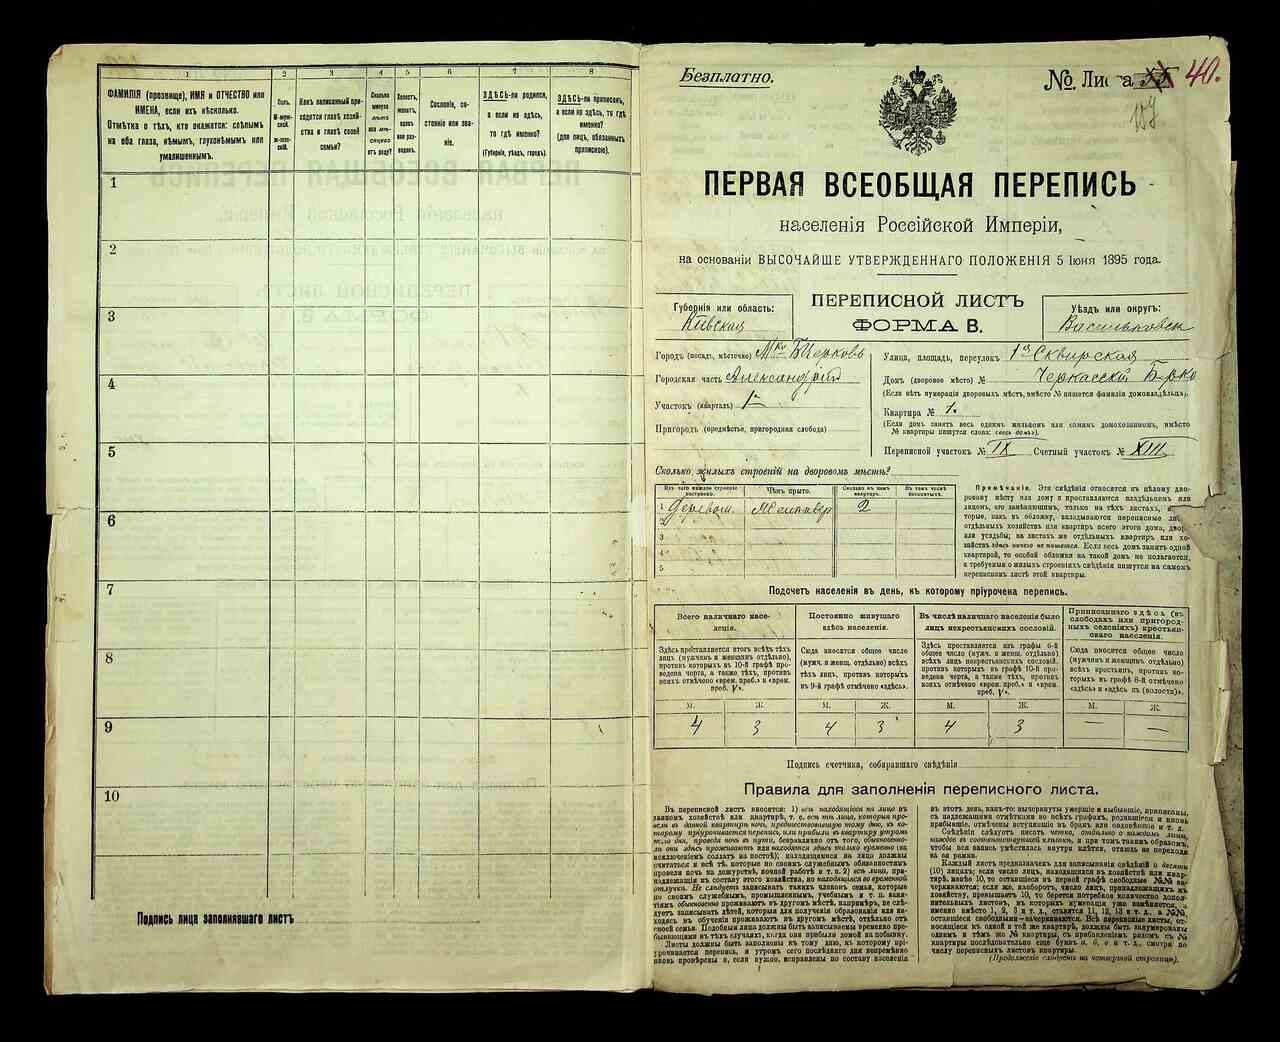 1
2
3
4
5
6
7
8
ФАМИЛІЯ (прозвище), ИМЯ и ОТЧЕСТВО или
ИМЕНА, если ихъ нѣсколько.
Отмѣтка о тѣхъ, кто окажется: слѣпымъ
на оба глаза, нѣмымъ, глухонѣмымъ или
умалишеннымъ.
Полъ.
М-муж-
ской.
Ж-жен-
скій.
Какъ записанный при-
ходится главѣ хозяй-
ства и главѣ своей
семьи?
Сколько
минуло
лѣтъ
или мѣ-
сяцевъ
отъ роду?
Холостъ,
женатъ,
вдовъ
или раз-
веденъ.
Сословіе, со-
стояніе или зва-
ніе.
ЗДѢСЬ-ли родился,
а если не здѣсь,
то гдѣ именно?
(Губернія, уѣздъ, городъ).
ЗДѢСЬ-ли приписанъ,
а если не здѣсь, то гдѣ
именно?
(для лицъ, обязанныхъ
припискою).
1
2
3
4
5
6
7
8
9
10
Подпись лица заполнявшаго листъ
Безплатно.
№. Листа 40.
ПЕРВАЯ ВСЕОБЩАЯ ПЕРЕПИСЬ
населенія Россійской Имперіи,
на основаніи ВЫСОЧАЙШЕ УТВЕРЖДЕННАГО ПОЛОЖЕНІЯ 5 Іюня 1895 года.
ПЕРЕПИСНОЙ ЛИСТЪ
ФОРМА В.
Губернія или область:
Кіевская
Уѣздъ или округъ:
Васильковск
Городъ (посадъ, мѣстечко) Мко Бцерковь
Городская часть Александрій
Участокъ (кварталъ) 1й
Пригородъ (предмѣстье, пригородная слобода)
Улица, площадь, переулокъ 1я Сквирская
Домъ (дворовое мѣсто) № Черкасскій
(Если нѣтъ нумераціи дворовыхъ мѣстъ, вмѣсто № пишется фамилія домовладѣльца).
Квартира № 1.
(Если домъ занятъ весь однимъ жильцомъ или самимъ домохозяиномъ, вмѣсто
№ квартиры пишутся слова: «весь домъ»).
Переписной участокъ № IX Счетный участокъ № XIII
Сколько жилыхъ строеній на дворовомъ мѣстѣ?
Изъ чего каждое строеніе
построено.
Чѣмъ крыто.
Сколько въ немъ
квартиръ.
Въ томъ числѣ
незанятыхъ.
1 Деревян. 2
2
3
4
5
Примѣчаніе. Эти свѣдѣнія относятся къ цѣлому дво-
ровому мѣсту или дому и проставляются владѣльцемъ или
лицомъ, его замѣняющимъ, только на тѣхъ листахъ,
торые, какъ въ обложку, вкладываются переписные
отдѣльныхъ хозяйствъ или квартиръ всего этого дома,
или усадьбы; на листахъ же отдѣльныхъ квартиръ или хо-
зяйствъ здѣсь ничего не пишется. Если весь домъ занятъ одной
квартирой, то особой обложки на такой домъ не полагается,
а требуемыя о жилыхъ строеніяхъ свѣдѣнія пишутся на самомъ
переписномъ листѣ этой квартиры.
Подсчетъ населенія въ день, къ которому пріурочена перепись.
Всего наличнаго насе-
ленія.
Постоянно живущаго
здѣсь населенія.
Въ числѣ наличнаго населенія было
лицъ некрестьянскихъ сословій.
Приписаннаго здѣсь (въ
слободахъ или пригород-
ныхъ селеніяхъ) крестьян-
скаго населенія.
Здѣсь проставляется итогъ всѣхъ тѣхъ
лицъ (мужчинъ и женщинъ отдѣльно),
противъ которыхъ въ 10-й графѣ про-
ведена черта, а также тѣхъ, противъ
коихъ отмѣчено «врем. преб.» и «врем.
преб. V».
Сюда вносится общее число
(мужч. и женщ. отдѣльно) всѣхъ
тѣхъ лицъ, противъ которыхъ
въ 9-й графѣ отмѣчено «здѣсь».
Здѣсь проставляется изъ графы 6-й
общее число (мужч. и женщ. отдѣльно)
всѣхъ лицъ некрестьянскихъ сословій,
противъ которыхъ въ графѣ 10-й про-
ведена черта, а также тѣхъ, противъ
коихъ отмѣчено «врем. преб.» и «врем.
преб. V».
Сюда вносится общее число
(мужчинъ и женщинъ отдѣльно)
всѣхъ крестьянъ, противъ ко-
торыхъ въ графѣ 8-й отмѣчено
«здѣсь» и «здѣсь въ (волости)».
М. Ж. М. Ж. М. Ж. М. Ж.
4 3 4 3 4 3 — —
Подпись счетчика, собиравшаго свѣдѣнія
Правила для заполненія переписного листа.
Въ переписной листъ вносятся: 1) всѣ находящіеся на лицо въ
данномъ хозяйствѣ или квартирѣ, т. е. всѣ тѣ лица, которыя про-
вели въ данной квартирѣ ночь, предшествовавшую тому дню, къ ко-
торому пріурочивается перепись, или прибыли въ квартиру утромъ
этого дня, проведя ночь въ пути, безразлично отъ того, обыкновен-
но ли они здѣсь проживаютъ или находятся здѣсь только временно (за
исключеніемъ солдатъ на постоѣ); находящимися на лицо должны
считаться и всѣ тѣ, которые по своимъ служебнымъ обязанностямъ
провели ночь на дежурствѣ, ночной работѣ и т. п. 2) всѣ лица, при-
надлежащія къ составу этого хозяйства, но находящіяся во временной
отлучкѣ. Не слѣдуетъ записывать такихъ членовъ семьи, которые
по своимъ служебнымъ, промышленнымъ, учебнымъ и т. п. заня-
тіямъ обыкновенно проживаютъ въ другомъ мѣстѣ, напримѣръ, не слѣ-
дуетъ записывать дѣтей, которыя для полученія образованія или на-
ходясь въ обученіи проживаютъ въ другомъ мѣстѣ, отдѣльно отъ
своей семьи. Подобныя лица должны быть записываемы временно пре-
бывающими въ тѣхъ случаяхъ, когда они прибыли домой на побывку.
Листы должны быть заполнены къ тому дню, къ которому прі-
урочивается перепись, и утромъ сего послѣдняго дня непремѣнно
вновь провѣрены и, если нужно, исправлены по составу населенія
въ этотъ день, какъ-то: вычеркнуты умершіе и выбывшіе, приписаны,
съ надлежащими отмѣтками во всѣхъ графахъ, родившіеся и вновь
прибывшіе, отмѣчены вступившіе въ бракъ или овдовѣвшіе и т. д.
Свѣдѣнія слѣдуетъ писать четко, отдѣльно о каждомъ лицѣ,
каждое въ соотвѣтствующей клѣткѣ, и при томъ такимъ образомъ,
чтобы вся запись умѣстилась внутри клѣтки, отнюдь не переходя
за ея рамки.
Каждый листъ предназначенъ для записыванія свѣдѣній о десяти
(10) лицахъ; если число лицъ, находящихся въ хозяйствѣ или квар-
тирѣ, менѣе 10, то оставшіеся въ первой графѣ свободные №№ за-
черкиваются; если же, наоборотъ, число лицъ, принадлежащихъ къ
хозяйству, превышаетъ 10, берется потребное количество допол-
нительныхъ листовъ, въ которыхъ нумерація уже измѣняется, а
именно вмѣсто 1, 2, 3 и т. д., ставятся 11, 12, 13 и т. д., а №№,
оставшіеся свободными—зачеркиваются. Всѣ переписные листы, от-
носящіеся къ одной и той же квартирѣ, должны быть занумерованы
однимъ и тѣмъ же № квартиры, съ прибавленіемъ рядомъ съ №
квартиры послѣдовательно еще буквъ а, б, в и т. д., смотря по
числу переписныхъ листовъ квартиры.
(Продолженіе слѣдуетъ на четвертой страницѣ).